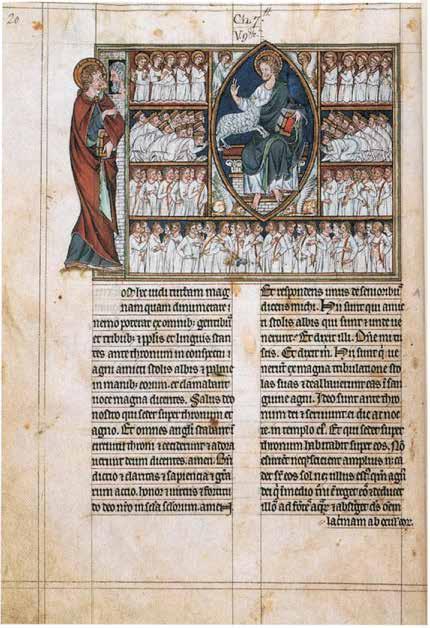 20
Ch. 7th
V. 9th
ost hec uidi turbam mag
nam quam dinumerare
nemo poterat ex omnib; gentib;
et tribub; et pplis et linguis stan
tes ante thronum in conspectu
agni amicti stolis albis et palme
in manib; eorum. et clamabant
uoce magna dicentes. Salus deo
nostro qui sedet super thronum et
agno. Et omnes angli stabant
circuitu throni et ceciderunt et adora
uerunt deum dicentes. amen. Bñ
dictio et claritas et sapiencia et
rum actio. honor et uirtus et fortitu
do deo nr̃o in scła scłorum. amen
Et respondens unus de senioribus
dicens michi. Hii sunt qui amic
ti stolis albis qui sunt et unde ue
nerunt. Et dixit illi. Dñe mi tu
scis. Et dixit m. Hii sunt q̃ ue
nerũt ex magna tribulatione et sto
las suas et dealbauerunt eas ĩ san
guine agni. Ideo sunt ante thro
num dei et seruiunt ei die ac noc
te in templo eĩ. Et qui sedet super
thronum habitabit super eos. Nõ
esurient neq; sicient amplius n̄ ca
det sr̃ eos sol neq; ullus estus qm̃ agñ
dei q̃ ĩ medio throni ẽ reget eos et deducet
illos ad fontes aq̃r et absterget ds̃ omẽ
lacrimam ab oculis eor.